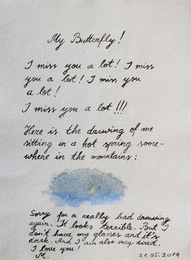 My Butterfly!
I miss you a lot! I miss
you a lot! I miss you
a lot!
I miss you a lot!!!
Here is the drawing of me
sitting in a hot spring some-
where in the mountains:
Sorry for a really bad drawing
again. It looks terrible. But I
don't have my glasses and it's
dark. And I am also very tired.
I love you!
M.
21.05.2019